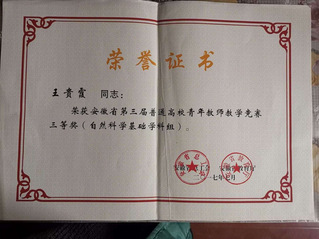 荣誉证书
王贵霞 同志：
荣获安徽省第三届普通高校青年教师教学竞赛
三等奖（自然科学基础学科组）。